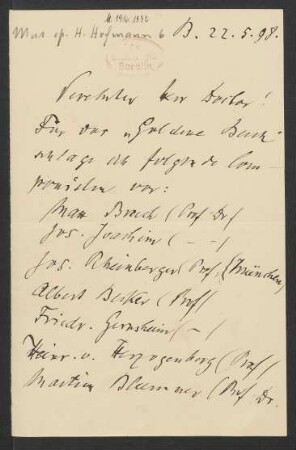 M. 1916. 1550
Mus. ep. H. Hofmann 6 B. 22.5.98.
Berlin
Verehrter Herr Doctor!
Für das "Goldene Buch"
schlage ich folgende Com-
ponisten vor:
Max Bruch (Prof Dr)
Jos. Joachim ( – – )
Jos. Rheinberger (Prof, (München)
Albert Becker (Prof)
Friedr. Gernsheim ( – )
Heinr. v. Herzogenberg (Prof)
Martin Blumner (Prof Dr.